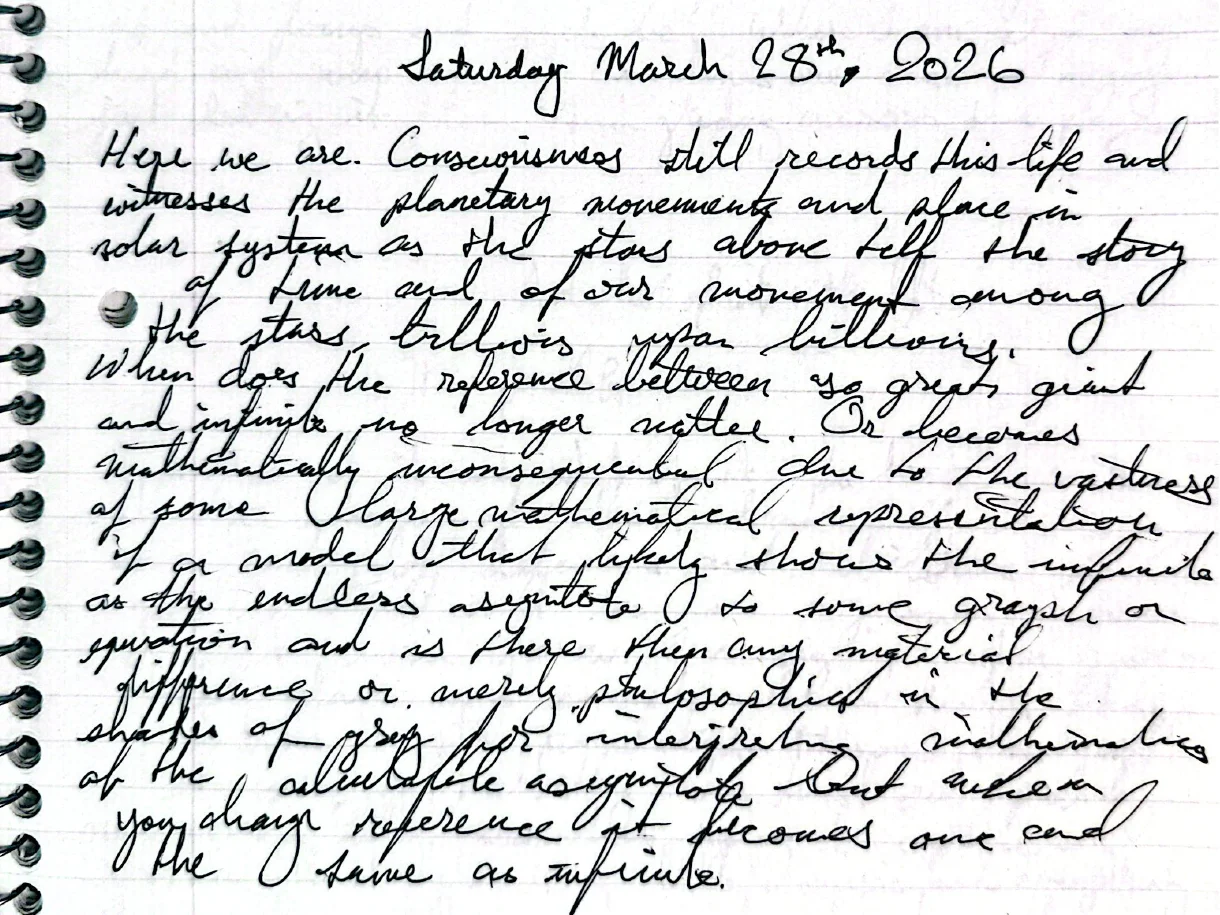 Saturday March 28th, 2026
Here we are. Consciousness still records this life and
witnesses the planetary movements and place in
solar system as the stars above tell the story
of time and of our movement among
the stars, trillions upon billions.
When does the reference between so great giant
and infinite no longer matter. Or becomes
mathematically inconsequential due to the vastness
of some large mathematical representation
if a model that likely shows the infinite
as the endless asymtote to some graph or
equation and is there then any material
difference or merely philosophical in the
shades of grey for interpreting mathematics
of the calculatable asymptote but when
you change reference it becomes one and
the same as infinite.